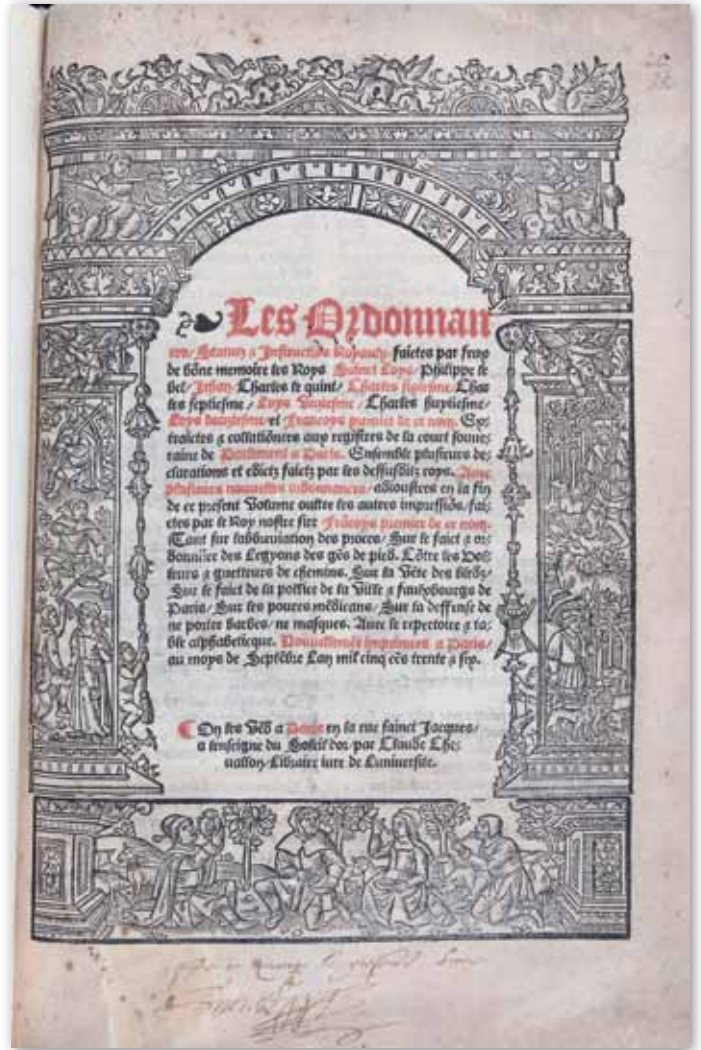 Les Ordonnan
ces/ Statutz ⁊ Instructiõs Royaulx faictes par feux
de bõne memoire les Roys Sainct Loys/ Philippe le
bel/ Jehan/ Charles le quint/ Charles sixiesme/ Char
les septiesme/ Loys Unziesme/ Charles huytiesme/
Loys douziesme/ et Francoys premier de ce nom. Ex-
traictes ⁊ collatiõnees aux registres de la court souue-
raine de Parlement a Paris. Ensemble plusieurs de-
clarations et edictz faictz par les dessusditz roys. Auec
plusieurs nouuelles ordonnances/ adioustees en la fin
de ce present Volume oultre les autres impressiõs/ fai-
ctes par le Roy nostre sire Frãcoys premier de ce nom.
Tant sur labbreuiation des proces/ Sur le faict ⁊ or-
donnãce des Legyons des gẽs de pied. Cõtre les Vol-
leurs ⁊ guetteurs de chemins. Sur la Vẽte des
Sur le faict de la pollice de la Ville ⁊ faulxbourgs de
Paris/ Sur les poures mẽdicans/ Sur la deffense de
ne porter barbes/ ne masques. Auec le repertoire ⁊ ta-
ble alphabeticque. Nouuellemẽt imprimees a Paris/
au moys de Septẽbre Lan mil cinq cẽs trente ⁊ sep.
¶ On les Vẽd a Paris en la rue sainct Jacques/
a lenseigne du Soleil dor/ par Claude Che-
uallon/ Libraire iure de Luniuersite.